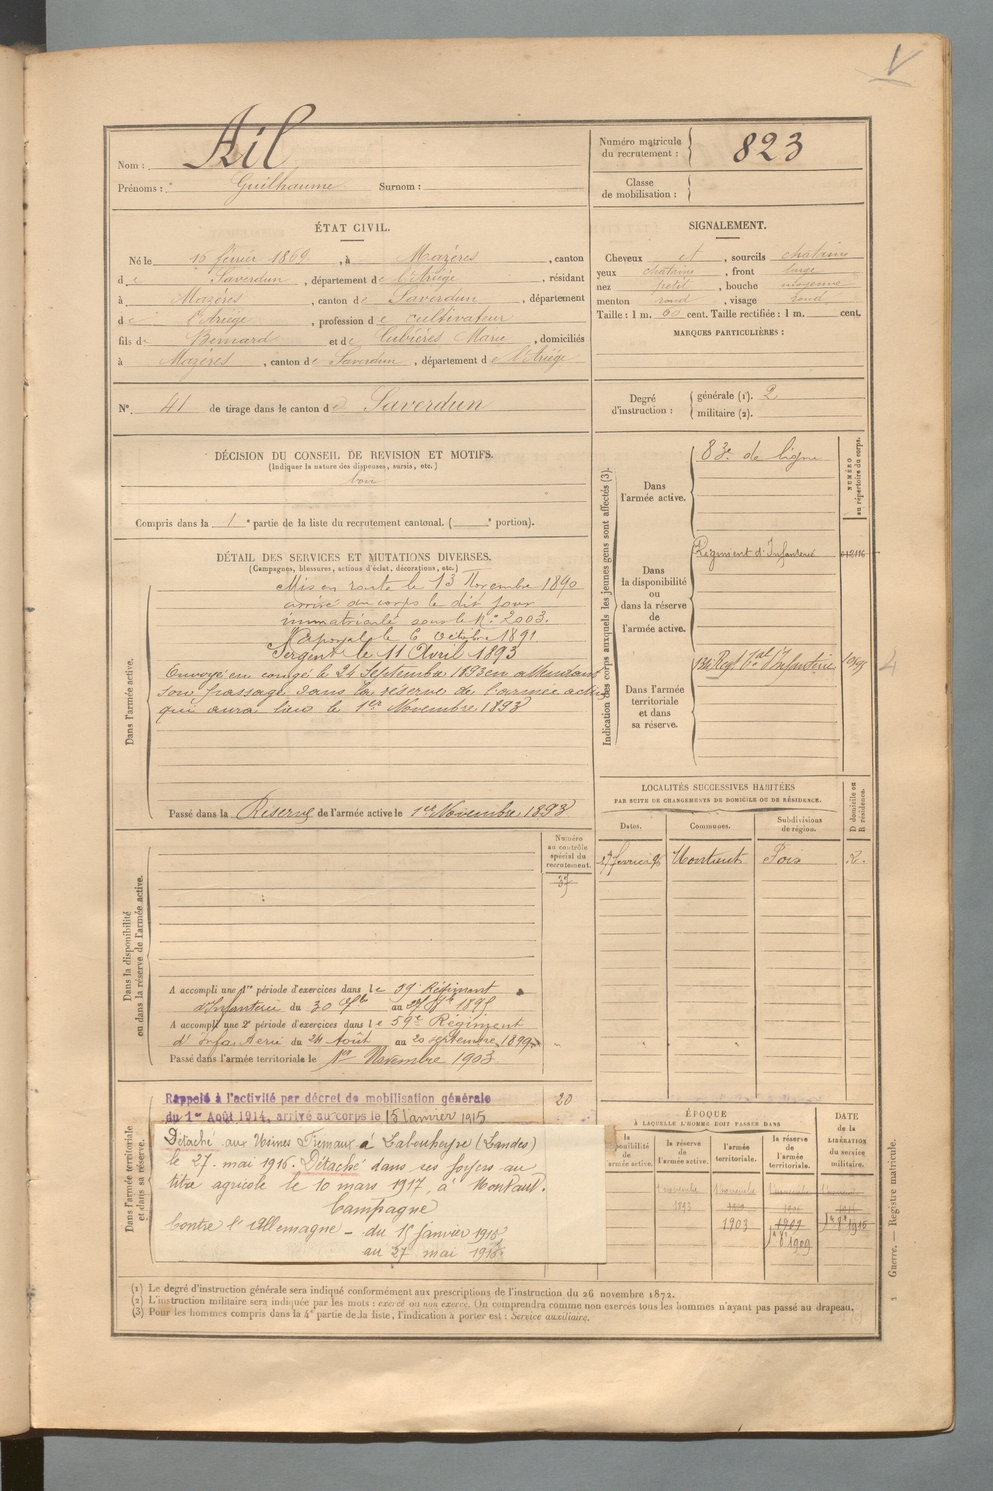 Nom : Ail
Prénoms : Guilhaume Surnom :
Numéro matricule du recrutement : 823
Classe de mobilisation :
ÉTAT CIVIL.
Né le 10 février 1869, à Mazères, canton
de Saverdun, département de l'Ariége, résidant
à Mazères, canton de Saverdun, département
de l'Ariége, profession de cultivateur
fils de Bernard et de Marie, domiciliés
à Mazères, canton de Saverdun, département de l'Ariége
N° 41 de tirage dans le canton de Saverdun
SIGNALEMENT.
Cheveux et, sourcils chatains
yeux chatains, front large
nez petit, bouche moyenne
menton rond, visage rond
Taille : 1 m. 60 cent. Taille rectifiée : 1 m. cent.
MARQUES PARTICULIÈRES :
Degré d'instruction : générale (1). 2
militaire (2).
DÉCISION DU CONSEIL DE REVISION ET MOTIFS.
(Indiquer la nature des dispenses, sursis, etc.)
bon
Compris dans la 1e partie de la liste du recrutement cantonal. ( e portion).
DÉTAIL DES SERVICES ET MUTATIONS DIVERSES.
(Campagnes, blessures, actions d'éclat, décorations, etc.)
Dans l'armée active.
Mis en route le 13 Novembre 1890
arrivé au corps le dit jour
immatriculé sous le N° 2003.
Caporal le 6 Octobre 1891
Sergent le 11 Avril 1893
Envoyé en congé le 24 Septembre 1893 en attendant
son passage dans la réserve de l'armée active
qui aura lieu le 1er Novembre 1893
Passé dans la Réserve de l'armée active le 1er Novembre 1893
Indication des corps auxquels les jeunes gens sont affectés (3).
NUMÉRO au répertoire du corps.
Dans l'armée active.
83e de ligne
Dans la disponibilité ou dans la réserve de l'armée active.
Régiment d'Infanterie
Dans l'armée territoriale et dans sa réserve.
Regt d'Infanterie
4
LOCALITÉS SUCCESSIVES HABITÉES
PAR SUITE DE CHANGEMENTS DE DOMICILE OU DE RÉSIDENCE.
Dates. Communes. Subdivisions de région. D domicile ou R résidence.
Montaut Foix R.
Dans la disponibilité ou dans la réserve de l'armée active.
Numéro au contrôle spécial du recrutement.
37
A accompli une 1re période d'exercices dans le 59 Régiment
d'Infanterie du 30 au 1895
A accompli une 2e période d'exercices dans le 59e Régiment
d'Infanterie du 24 Août au 20 septembre 1899
Passé dans l'armée territoriale le 1er Novembre 1903
Dans l'armée territoriale et dans sa réserve.
Rappelé à l'activité par décret de mobilisation générale
du 1er Août 1914, arrivé au corps le 15 Janvier 1915
20
Détaché aux Usines à Labouheyre (Landes)
le 27. mai 1916. Détaché dans ses foyers au
titre agricole le 10 mars 1917, à Montaut.
Campagne
Contre l'Allemagne - du 15 janvier 1915
au 27 mai 1916.
ÉPOQUE
À LAQUELLE L'HOMME DOIT PASSER DANS
la disponibilité de l'armée active. la réserve de l'armée active. l'armée territoriale. la réserve de l'armée territoriale.
DATE de la LIBÉRATION du service militaire.
1893
1903 1909
(1) Le degré d'instruction générale sera indiqué conformément aux prescriptions de l'instruction du 26 novembre 1872.
(2) L'instruction militaire sera indiquée par les mots : exercé ou non exercé. On comprendra comme non exercés tous les hommes n'ayant pas passé au drapeau.
(3) Pour les hommes compris dans la 4e partie de la liste, l'indication à porter est : Service auxiliaire.
Guerre. — Registre matricule.